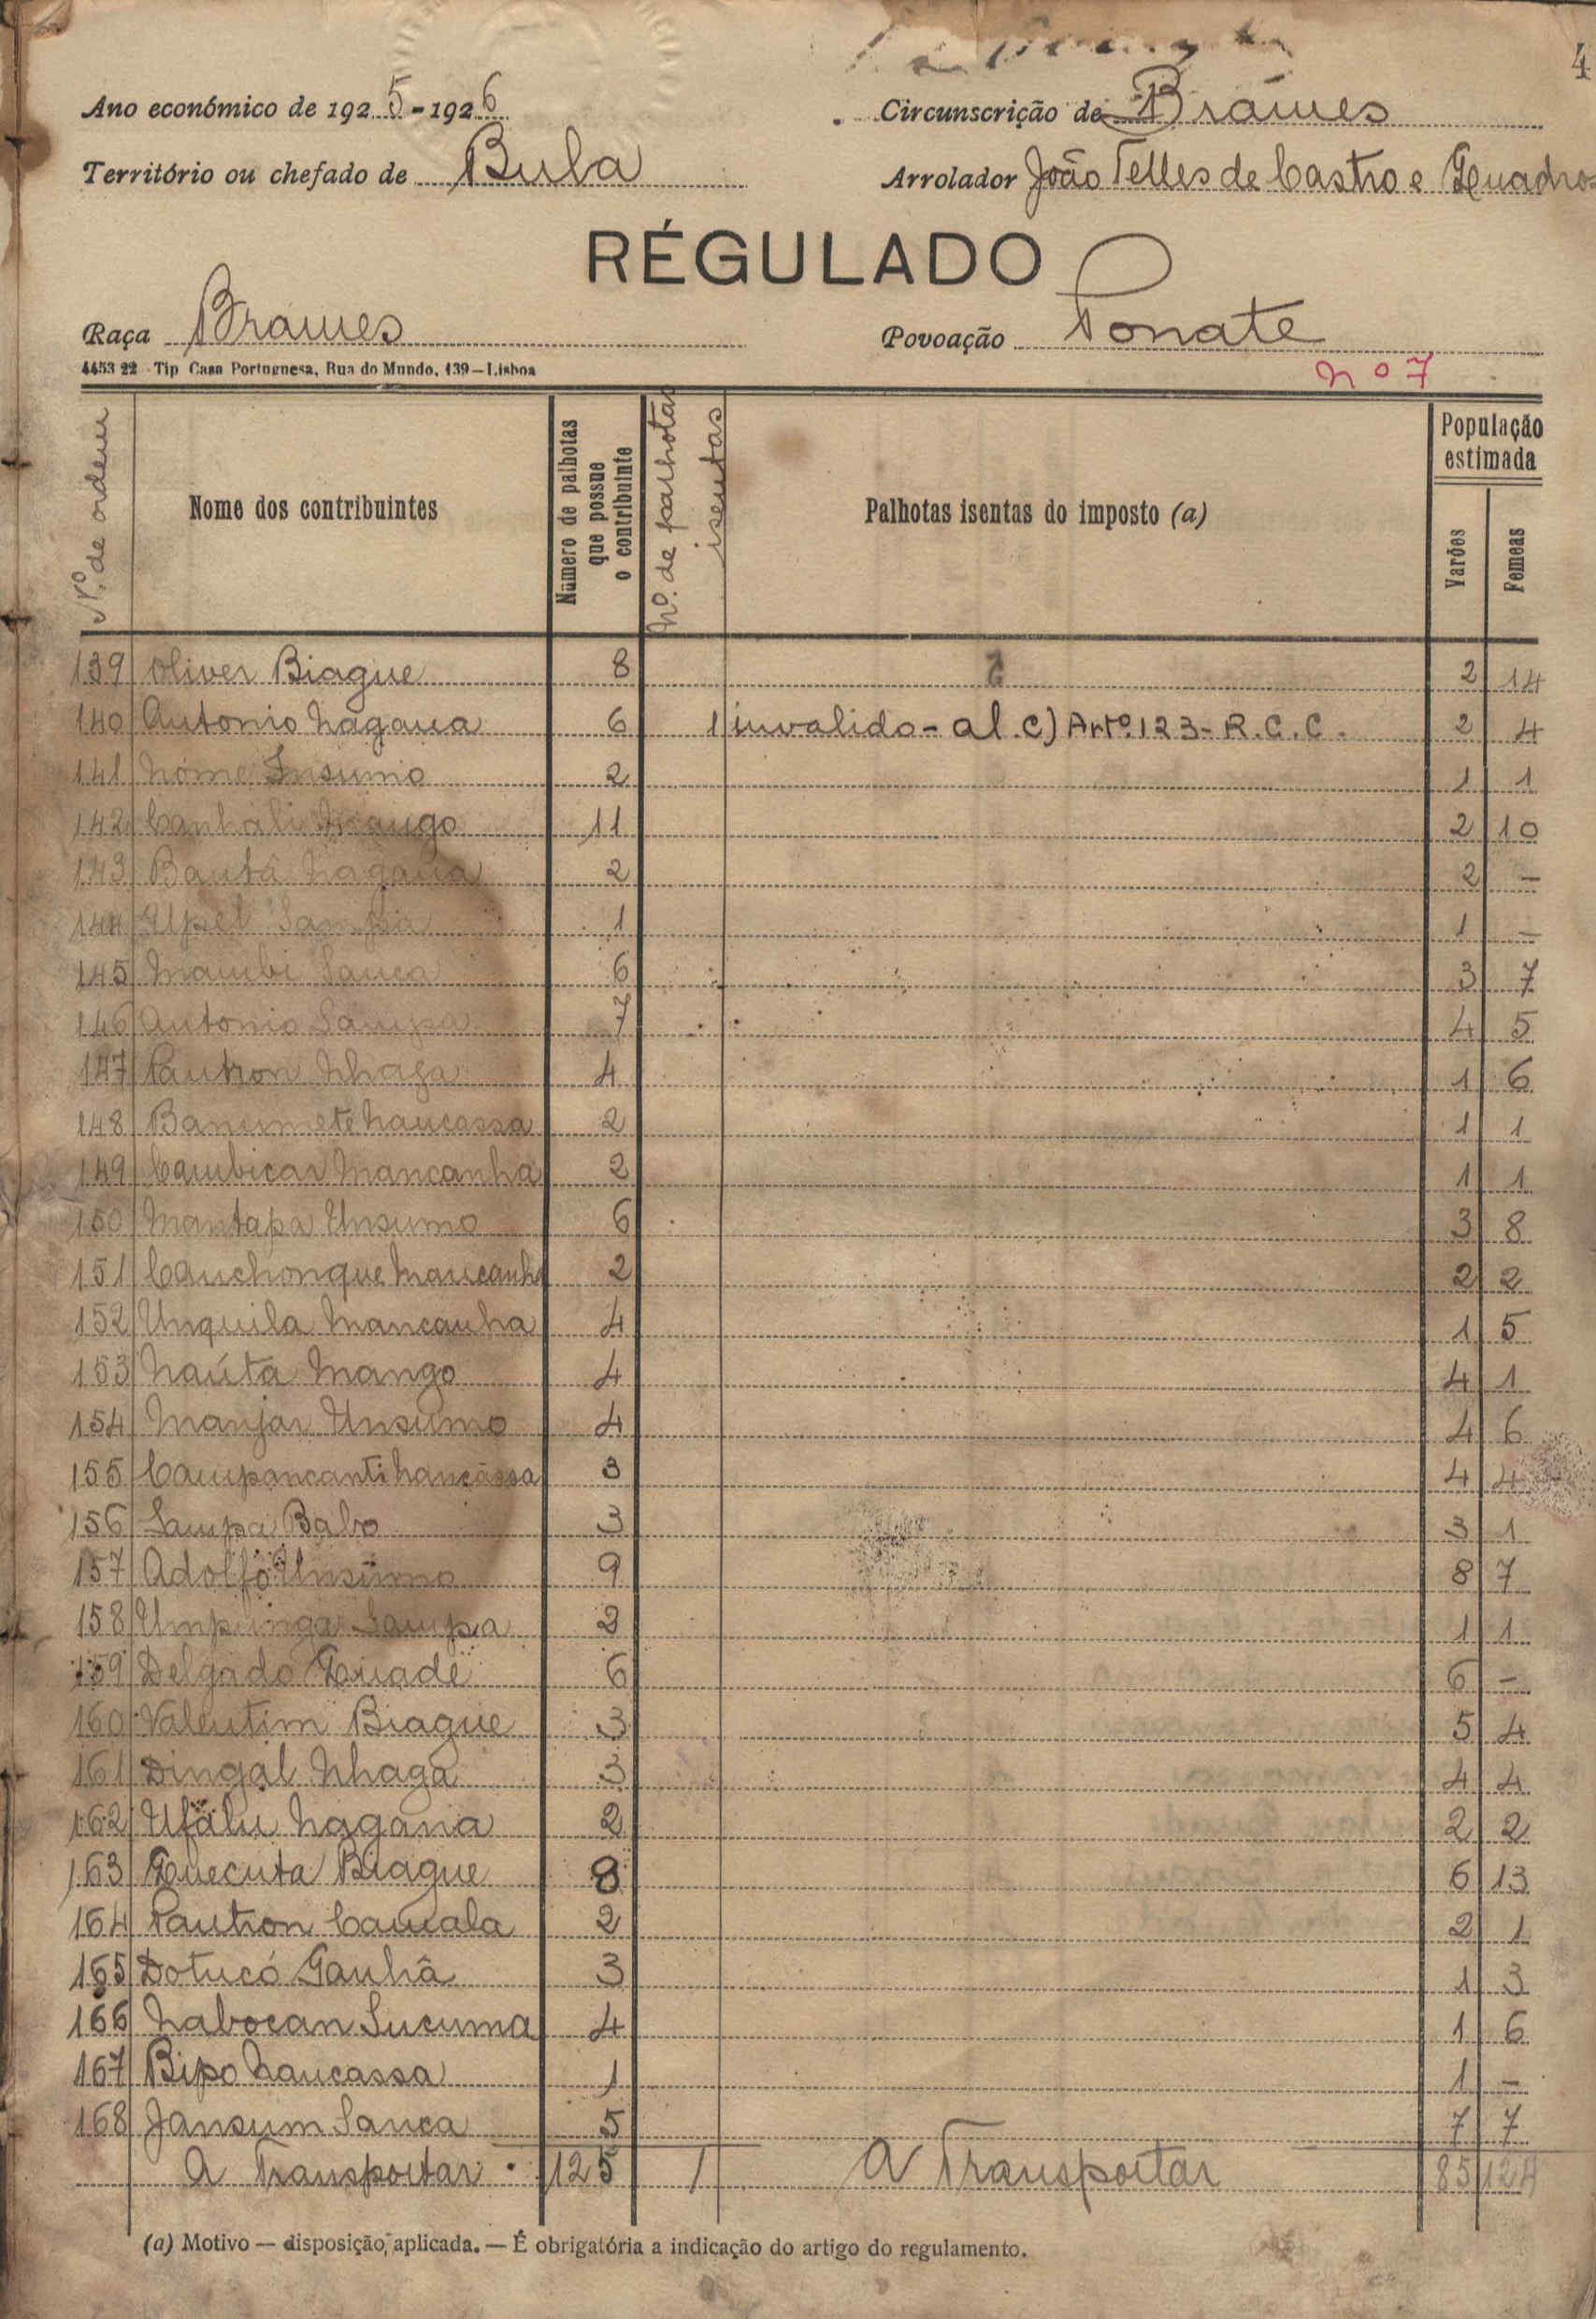 4
Ano económico de 1925-1926
Circunscrição de Brámes
Território ou chefado de Bula
Arrolador João Telles de Castro e Quadros
RÉGULADO
Raça Brames
Povoação Ponate
4453 22 Tip Casa Portuguesa, Rua do Mundo, 139—Lisboa
nº 7
Nº. de ordem
Nome dos contribuintes
Número de palhotas que possue o contribuinte
Nº. de palhotas isentas
Palhotas isentas do imposto (a)
População estimada
Varões
Femeas
139 Oliver Biague 8 2 14
140 Antonio Nagana 6 1 invalido - al. c) Artº. 123 - R.C.C. 2 4
141 Insumo 2 1 1
142 11 2 10
143 Bautâ Nagana 2 2 -
144 1 1 -
145 Mambi Sanca 6 3 7
146 Antonio Sampa 7 4 5
147 Pautron Nhaga 4 1 6
148 Banumeté Nancassa 2 1 1
149 Cambicar Mancanha 2 1 1
150 Mantapa Unsumo 6 3 8
151 Cauchonque Mancanha 2 2 2
152 Unquila Mancanha 4 1 5
153 Naúta Mango 4 4 1
154 Manjar Unsumo 4 4 6
155 Campancanti Nancassa 3 4 4
156 Sampa Babo 3 3 1
157 Adolfo Unsumo 9 8 7
158 Umpunga Sampa 2 1 1
159 Delgado Quadé 6 6 -
160 Valentim Biague 3 5 4
161 Dingal Nhaga 3 4 4
162 Ufalu Nagana 2 2 2
163 Quecuta Biague 8 6 13
164 Pautron Camala 2 2 1
165 Dotucó Ganhâ 3 1 3
166 Nabocan Sucuma 4 1 6
167 Bipo Nancassa 1 1 -
168 Jansum Sanca 5 7 7
A Transportar 125 1 A Transportar 85 124
(a) Motivo — disposição, aplicada. — É obrigatória a indicação do artigo do regulamento.